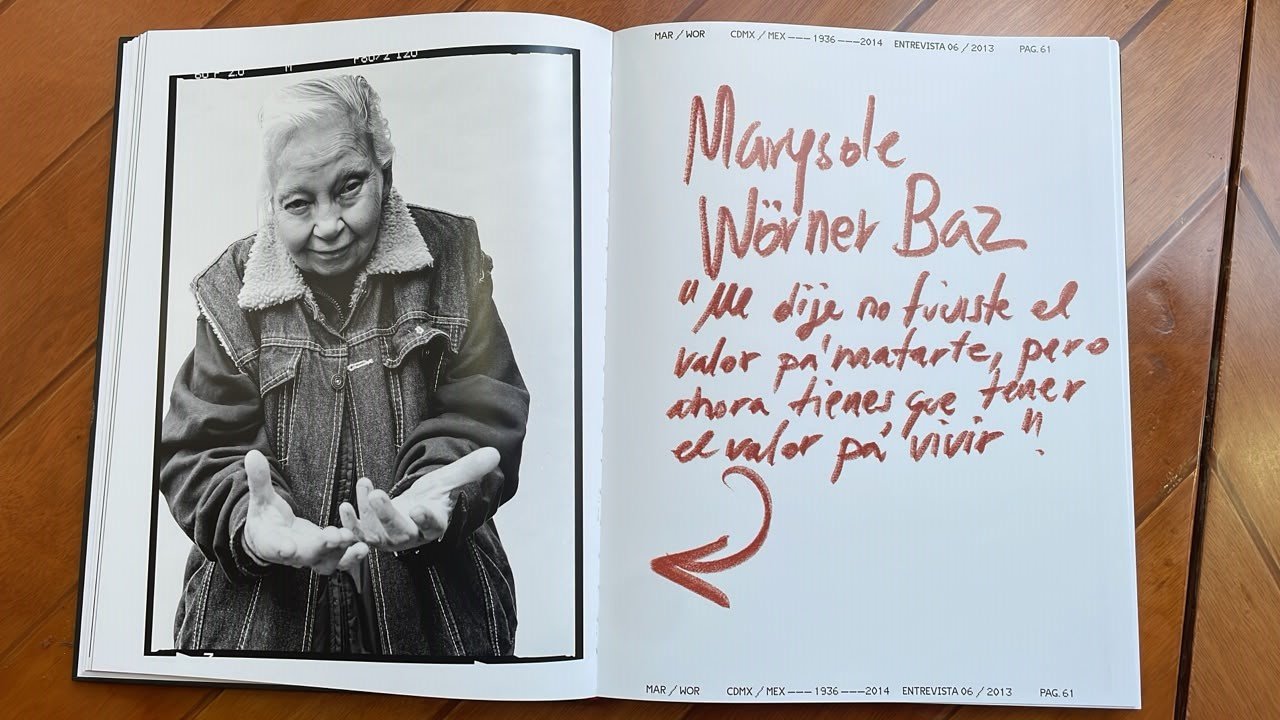 MAR / WOR CDMX / MEX ––– 1936 –––2014 ENTREVISTA 06 / 2013 PAG. 61
Marysole
Wörner Baz
"Me dije no tuviste el
valor pá matarte, pero
ahora tienes que tener
el valor pá vivir".
MAR / WOR CDMX / MEX ––– 1936 –––2014 ENTREVISTA 06 / 2013 PAG. 61